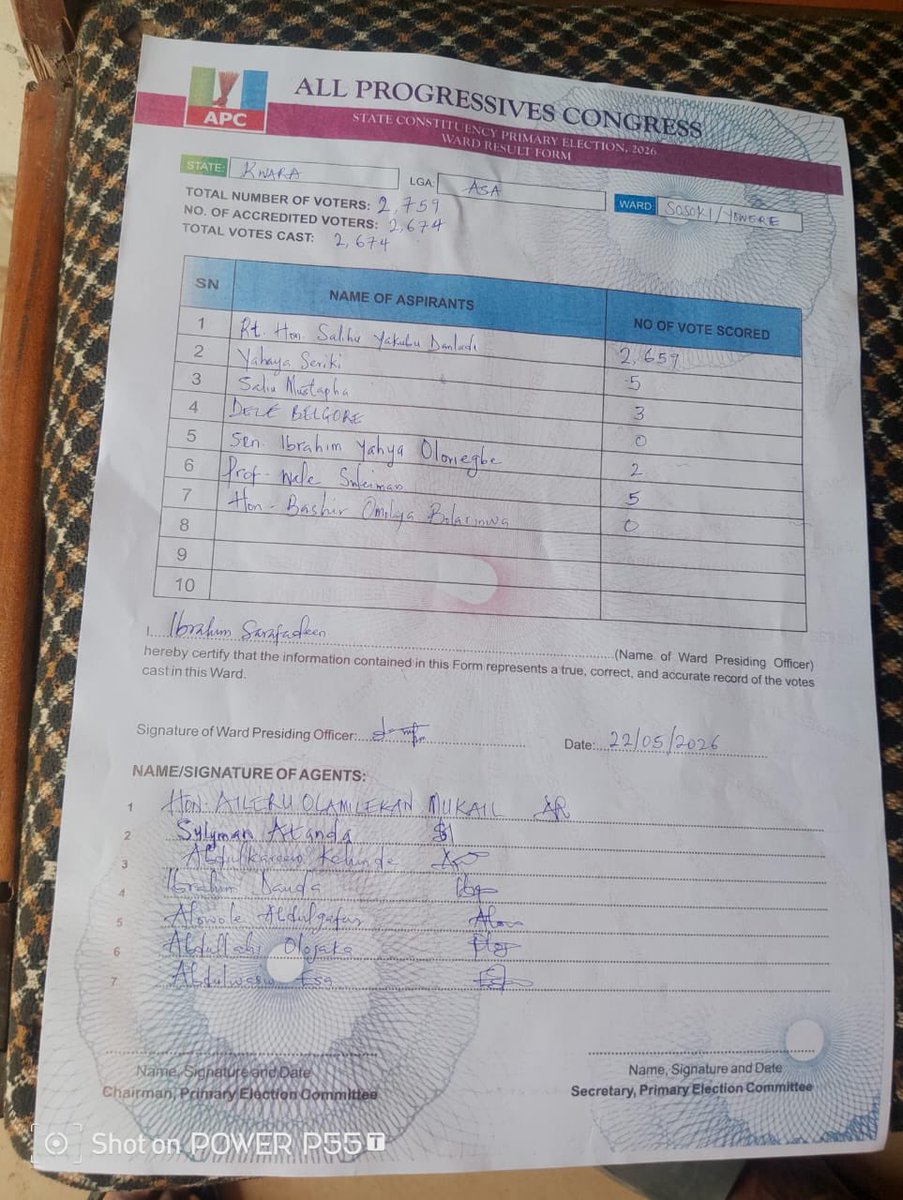 APC
ALL PROGRESSIVES CONGRESS
STATE CONSTITUENCY PRIMARY ELECTION, 2026
WARD RESULT FORM
STATE: KWARA LGA: ASA WARD: SOSOKI/YOWERE
TOTAL NUMBER OF VOTERS: 2,759
NO. OF ACCREDITED VOTERS: 2,674
TOTAL VOTES CAST: 2,674
SN NAME OF ASPIRANTS NO OF VOTE SCORED
1 Rt. Hon. Salihu Yakubu Danladi 2,659
2 Yahaya Seriki 5
3 Saliu Mustapha 3
4 DELE BELGORE 0
5 Sen. Ibrahim Yahya Oloriegbe 2
6 Prof. Wale Suleiman 5
7 Hon. Bashir Omolaja Bolarinwa 0
8
9
10
I Ibrahim Sarafadeen (Name of Ward Presiding Officer)
hereby certify that the information contained in this Form represents a true, correct, and accurate record of the votes
cast in this Ward.
Signature of Ward Presiding Officer: Date: 22/05/2026
NAME/SIGNATURE OF AGENTS:
1 HON. AILERU OLAMILEKAN MUKAIL
2 Sulyman Atanda
3 Abdulkareem Kehinde
4 Ibrahim Dauda
5 Alowole Abdulgafar
6 Abdullahi Olojaka
7 Abdulwasiu Esa
Name, Signature and Date Name, Signature and Date
Chairman, Primary Election Committee Secretary, Primary Election Committee
Shot on POWER P55T